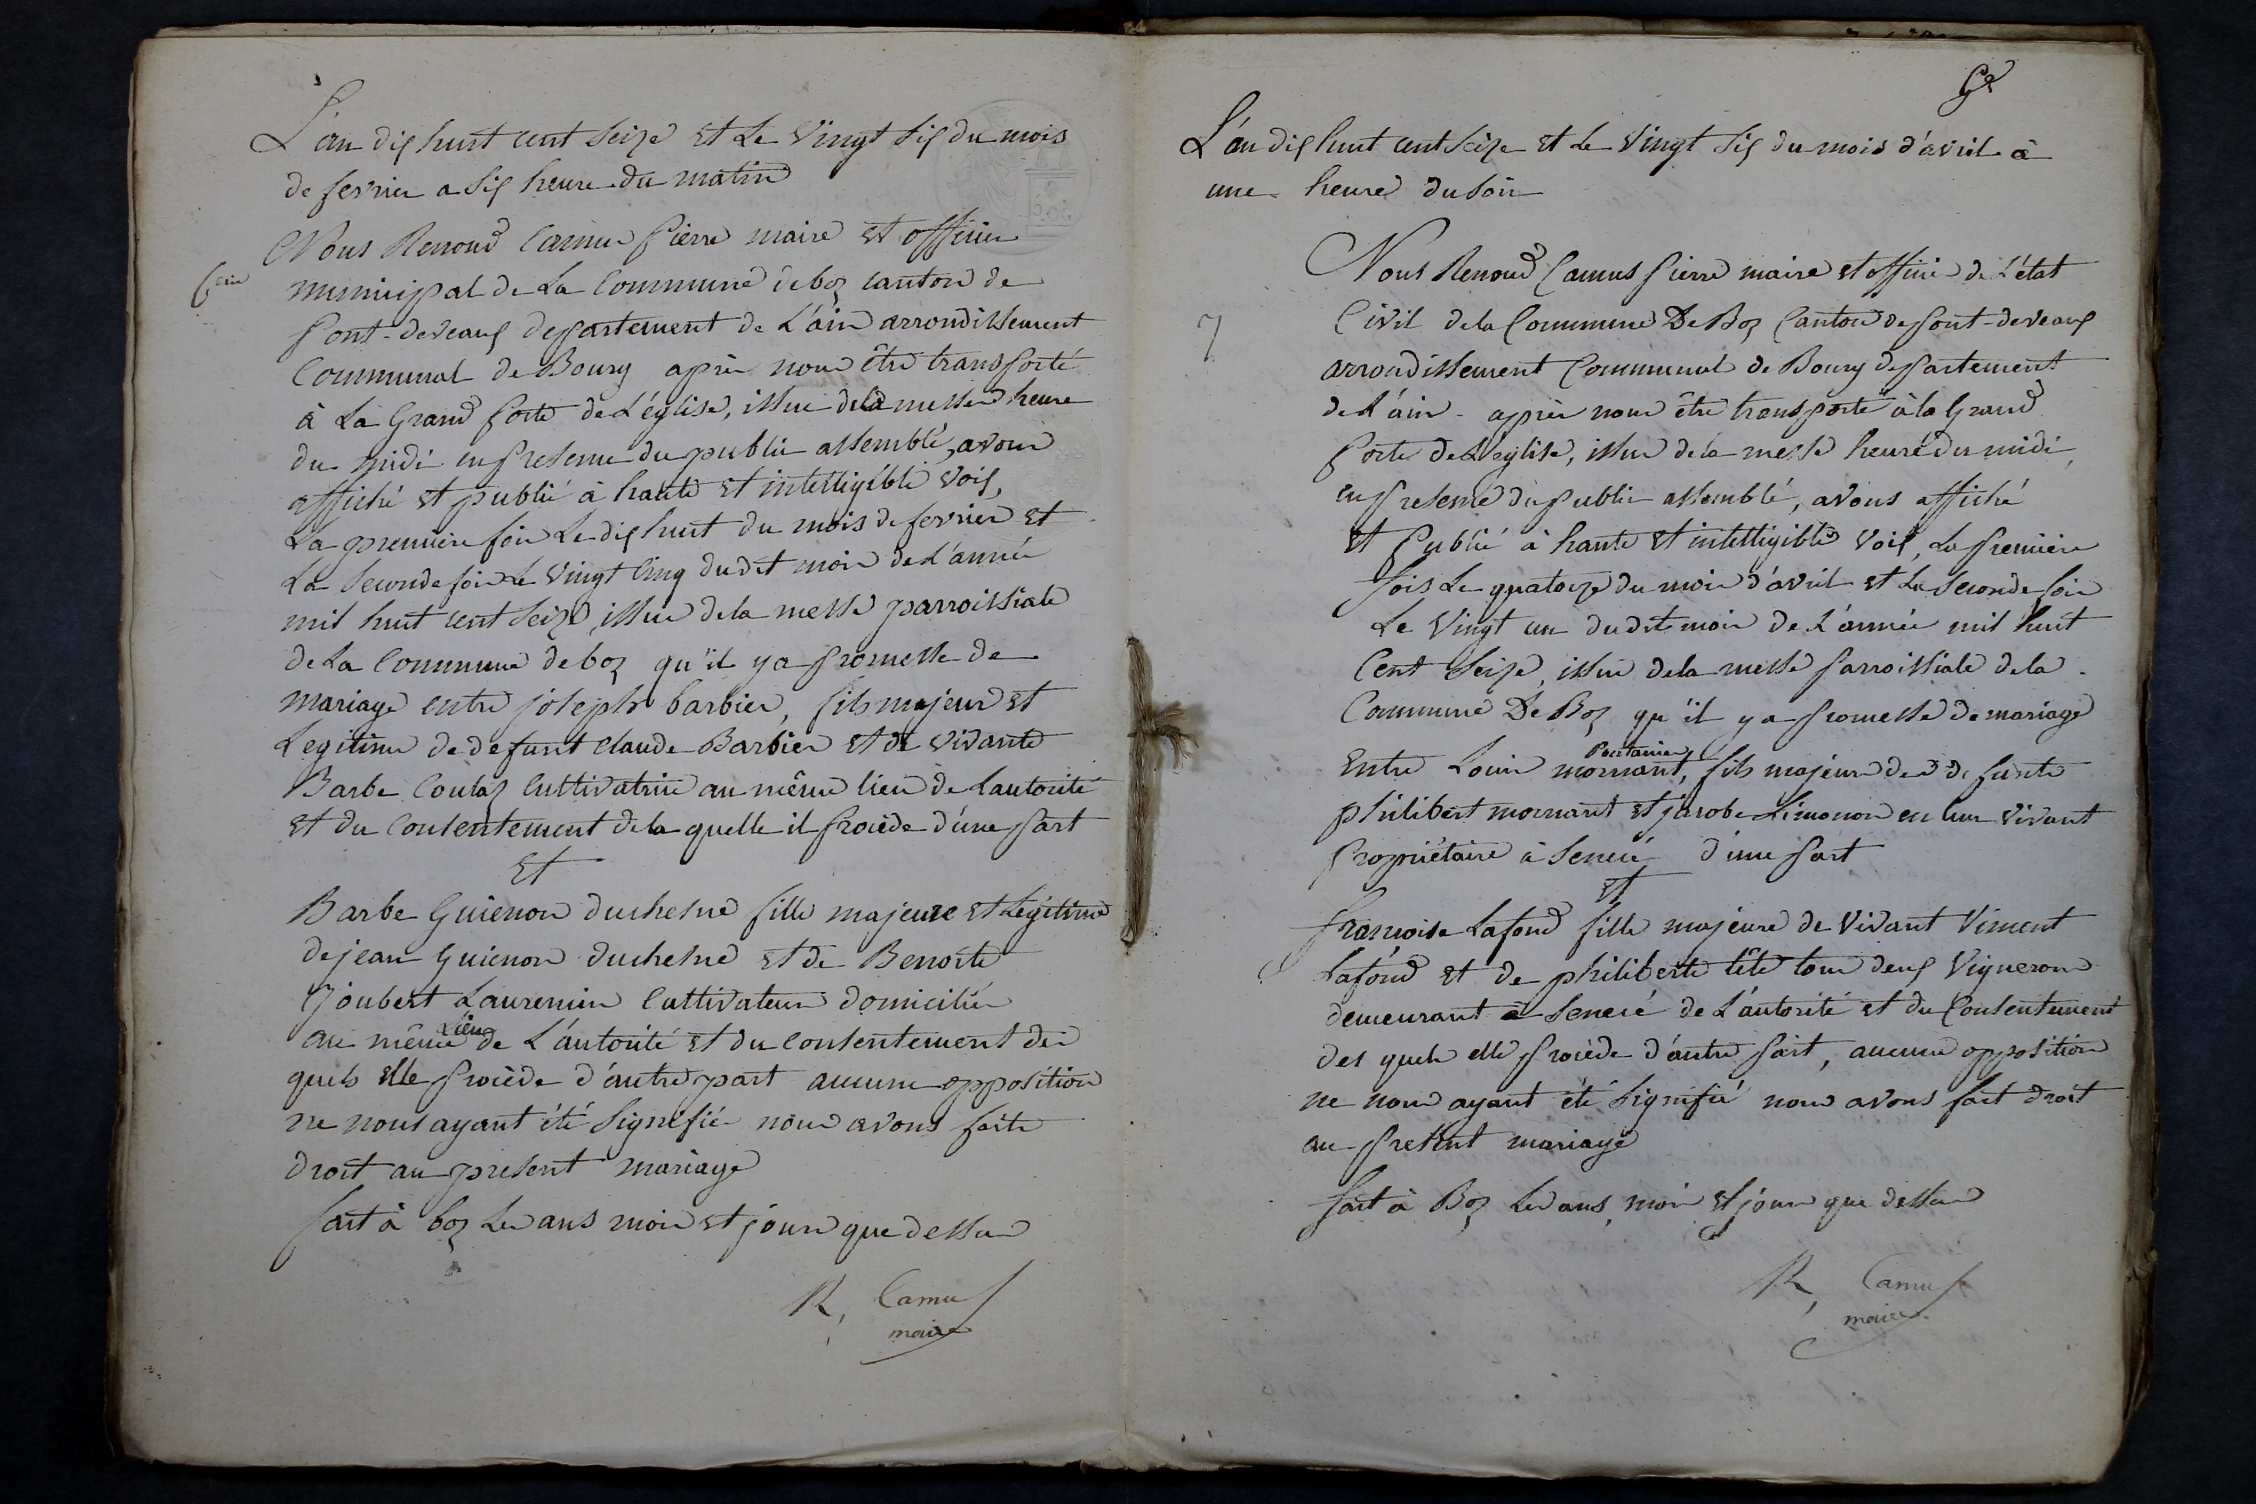 L'an dix huit cent seize et le vingt six du mois
de fevrier a six heure du matin
Nous Renoud Camus pierre maire et officier
6eme
municipal de la Commune de boz canton de
pont-devaux departement de l'ain arrondissement
Communal de Bourg après nous être transporté
à la Grand porte de l'église, issue de la messe heure
du midi en presence du public assemblé, avons
affiché et publié à haute et intelligible voix,
la premiere fois le dix huit du mois de fevrier et
la seconde fois le vingt cinq dudit mois de l'année
mil huit cent seize, issue de la messe parroissiale
de la Commune de boz qu'il y a promesse de
mariage entre joseph barbier, fils majeur et
Legitime de defunt claude Barbier et de vivante
Barbe Coulas Cultivatrice au même lieu de l'autorité
et du Consentement de la quelle il procède d'une part
Et
Barbe Guienon duchesne fille majeure et Légitime
de jean Guienon duchesne et de Benoite
Joubert Laurencin Cultivateurs domiciliés
au même lieu de L'autorité et du consentement des
quels elle procède d'autre part aucune opposition
ne nous ayant été signifiée nous avons faite
droit au present mariage
fait à boz les ans mois et jours que dessus
R, Camus
maire
L'an dix huit cent seize et le vingt six du mois d'avril à
une heure du soir
Nous Renoud Camus pierre maire et officier de l'état
7
Civil de la Commune De Boz Canton de pont-devaux
arrondissement Communal de Bourg departement
de l'ain. après nous être transporté à la Grand
porte de l'église, issue de la messe heure du midi,
en presence du public assemblé, avons affiché
et publié à haute et intelligible voix, la premiere
fois le quatorze du mois d'avril et la seconde fois
Le vingt un dudit mois de l'année mil huit
Cent seize, issue de la messe parroissiale de la
Commune De Boz qu'il y a promesse de mariage
Entre Louis mornant, fils majeure de defunte
philibert mornant et jacobe Limonon en leur vivant
propriétaire à Senecé d'une part
Et
francoise Lafond fille majeure de vivant vincent
Lafond et de philiberte tête tous deux vigneron
demeurant à Senecé de L'autorité et du Consentement
des quels elle procède d'autre part, aucune opposition
ne nous ayant été signifié nous avons fait droit
au present mariage
fait à Boz les ans, mois et jours que dessus
R, Camus
maire